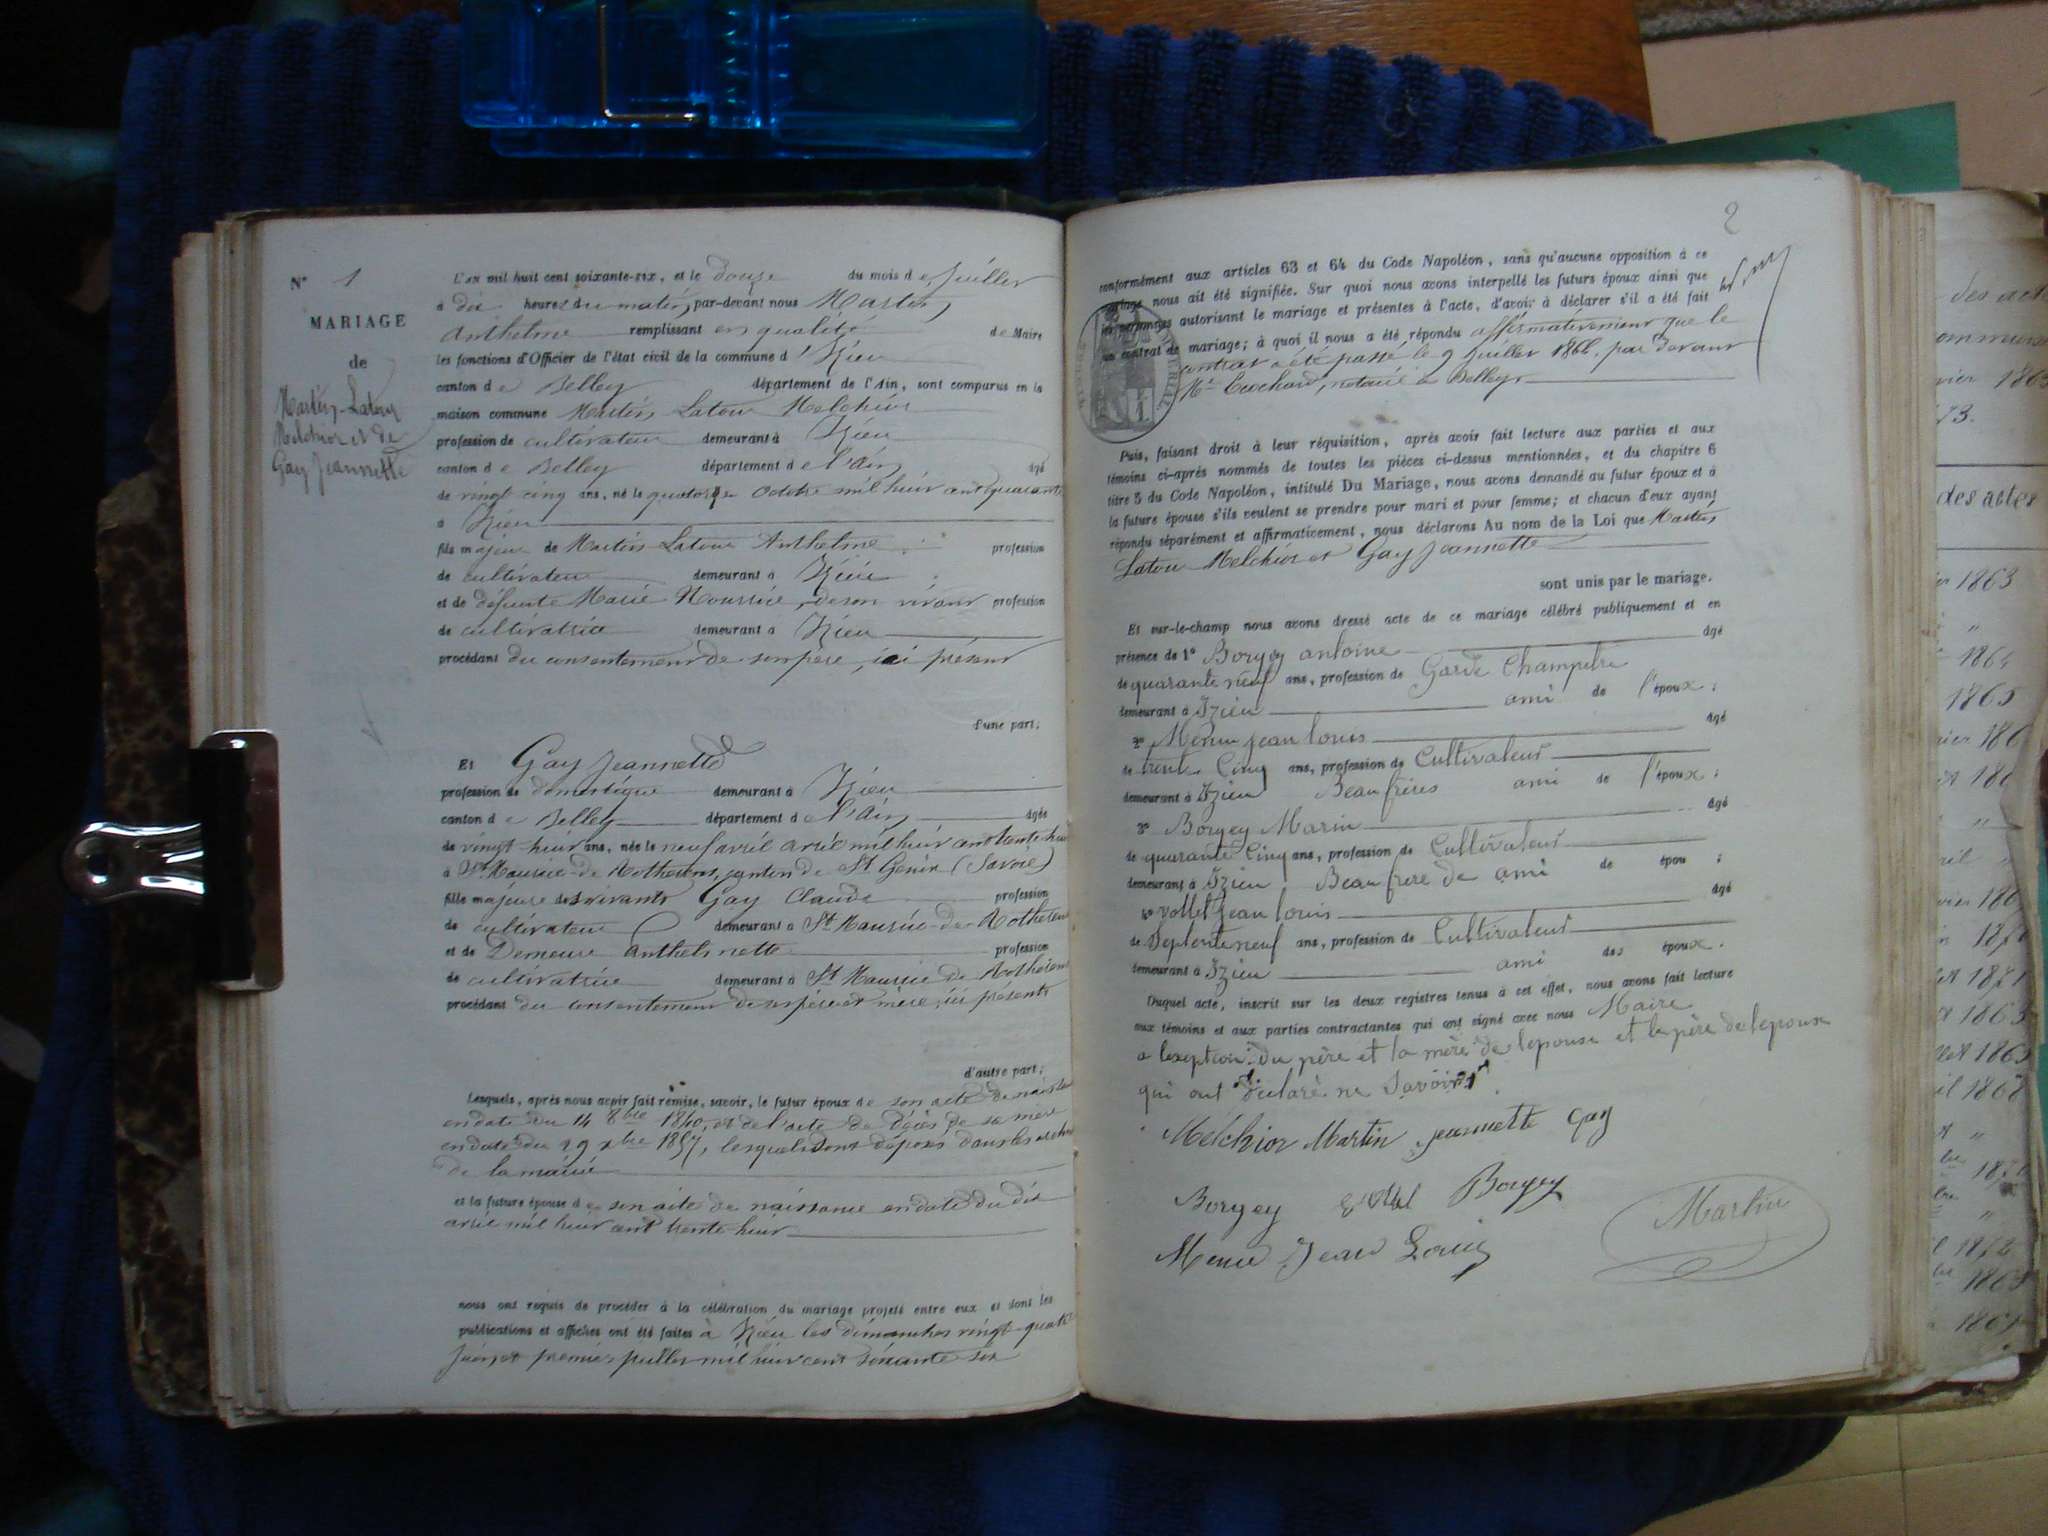 N° 1
MARIAGE
de
Martin-Latour
Melchior et de
Gay Jeannette
L'an mil huit cent soixante-six, et le douze du mois de Juillet
à dix heures du matin, par-devant nous Martin
Anthelme remplissant en qualité de Maire
les fonctions d'Officier de l'état civil de la commune d'Izieu
canton de Belley département de l'Ain, sont comparus en la
maison commune Martin Latour Melchior
profession de cultivateur demeurant à Izieu
canton de Belley département de l'Ain âgé
de vingt cinq ans, né le quatorze Octobre mil huit cent quarante
à Izieu
fils majeur de Martin Latour Anthelme profession
de cultivateur demeurant à Izieu
et de défunte Marie Nourrice, de son vivant profession
de cultivatrice demeurant à Izieu
procédant du consentement de son père, ici présent
d'une part;
Et Gay Jeannette
profession de domestique demeurant à Izieu
canton de Belley département de l'Ain âgée
de vingt huit ans, née le neuf avril avril mil huit cent trente huit
à St Maurice-de Rotherens, canton de St Genix (Savoie)
fille majeure des vivants Gay Claude profession
de cultivateur demeurant à St Maurice-de Rotherens
et de Demeure Anthelmette profession
de cultivatrice demeurant à St Maurice de Rotherens
procédant du consentement de ses père et mère, ici présents
d'autre part;
Lesquels, après nous avoir fait remise, savoir, le futur époux de son acte de naissance
en date du 14 8bre 1840, et de l'acte de décès de sa mère
en date du 29 xbre 1857, lesquels sont déposés dans les archives
de la mairie
et la future épouse de son acte de naissance en date du dix
avril mil huit cent trente-huit
nous ont requis de procéder à la célébration du mariage projeté entre eux et dont les
publications et affiches ont été faites à Izieu les dimanches vingt-quatre
Juin et premier juillet mil huit cent soixante six
2
conformément aux articles 63 et 64 du Code Napoléon, sans qu'aucune opposition à ce
mariage nous ait été signifiée. Sur quoi nous avons interpellé les futurs époux ainsi que
les personnes autorisant le mariage et présentes à l'acte, d'avoir à déclarer s'il a été fait
un contrat de mariage; à quoi il nous a été répondu affirmativement que le
contrat a été passé le 9 Juillet 1866, par devant
Me notaire à Belley
Puis, faisant droit à leur réquisition, après avoir fait lecture aux parties et aux
témoins ci-après nommés de toutes les pièces ci-dessus mentionnées, et du chapitre 6
titre 5 du Code Napoléon, intitulé Du Mariage, nous avons demandé au futur époux et à
la future épouse s'ils veulent se prendre pour mari et pour femme; et chacun d'eux ayant
répondu séparément et affirmativement, nous déclarons Au nom de la Loi que Martin
Latour Melchior et Gay Jeannette
sont unis par le mariage.
Et sur-le-champ nous avons dressé acte de ce mariage célébré publiquement et en
présence de 1° Borgey antoine âgé
de quarante neuf ans, profession de Garde Champetre
demeurant à Izieu ami de l'époux;
2° Menu jean louis âgé
de trente Cinq ans, profession de Cultivateur
demeurant à Izieu Beau frères ami de l'époux;
3° Borgey Marin âgé
de quarante Cinq ans, profession de Cultivateur
demeurant à Izieu Beau frere de ami de épou ;
4° vollet jean louis âgé
de Septente neuf ans, profession de Cultivateur
demeurant à Izieu ami des époux.
Duquel acte, inscrit sur les deux registres tenus à cet effet, nous avons fait lecture
aux témoins et aux parties contractantes qui ont signé avec nous Maire
a lexeption du père et la mère de lepouse et le père de lepoux
qui ont déclaré ne Savoir
Melchior Martin jeannette Gay
Borgey Borgey
Menu Jean Louis
Martin
des acte
1865
73.
des actes
1863
"
1864
1865
"
1871
1863
1868
"
"
1863